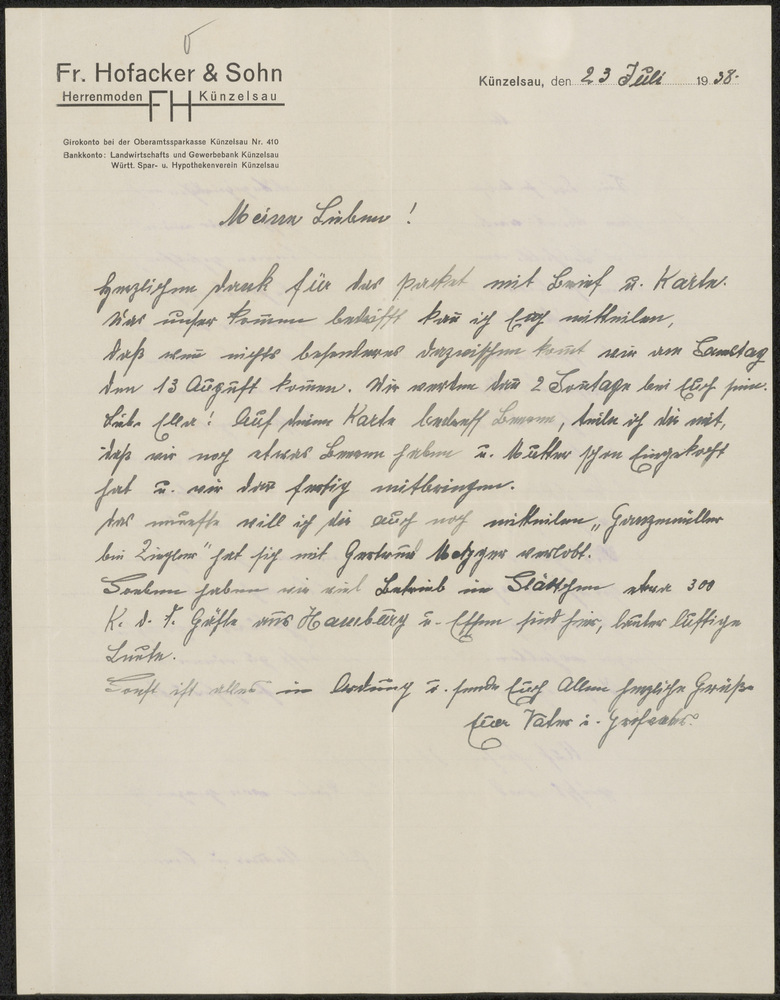 Fr. Hofacker & Sohn
Herrenmoden FH Künzelsau
Künzelsau, den 23 Juli 1938.
Girokonto bei der Oberamtssparkasse Künzelsau Nr. 410
Bankkonto: Landwirtschafts und Gewerbebank Künzelsau
Württ. Spar- u. Hypothekenverein Künzelsau
Meine Lieben!
Herzlichen Dank für das Packet mit Brief u. Karte.
Was unser kommen betrifft kan̄ ich Euch mitteilen,
daß wen̄ nichts besonderes dazwischen kom̄t wir am Samstag
den 13 August kom̄en. Wir werden dan̄ 2 Sontage bei Euch sein.
Liebe Ella! Auf deine Karte betreff Beeren, teile ich dir mit,
daß wir noch etwas Beeren haben u. Mutter schon Eingekocht
hat u. wir dan̄ fertig mitbringen.
Das neueste will ich dir auch noch mitteilen „Ganzmüller
bei Ziegler" hat sich mit Gertrud Metzger verlobt.
Soeben haben wir viel Betrieb im Städtchen etwa 300
K. d. F. Gäste aus Hamburg u. Essen sind hier, lauter lustige
Leute.
Sonst ist alles in Ordnung u. sende Euch Allen herzliche Grüße
Euer Vater u. Großvater.